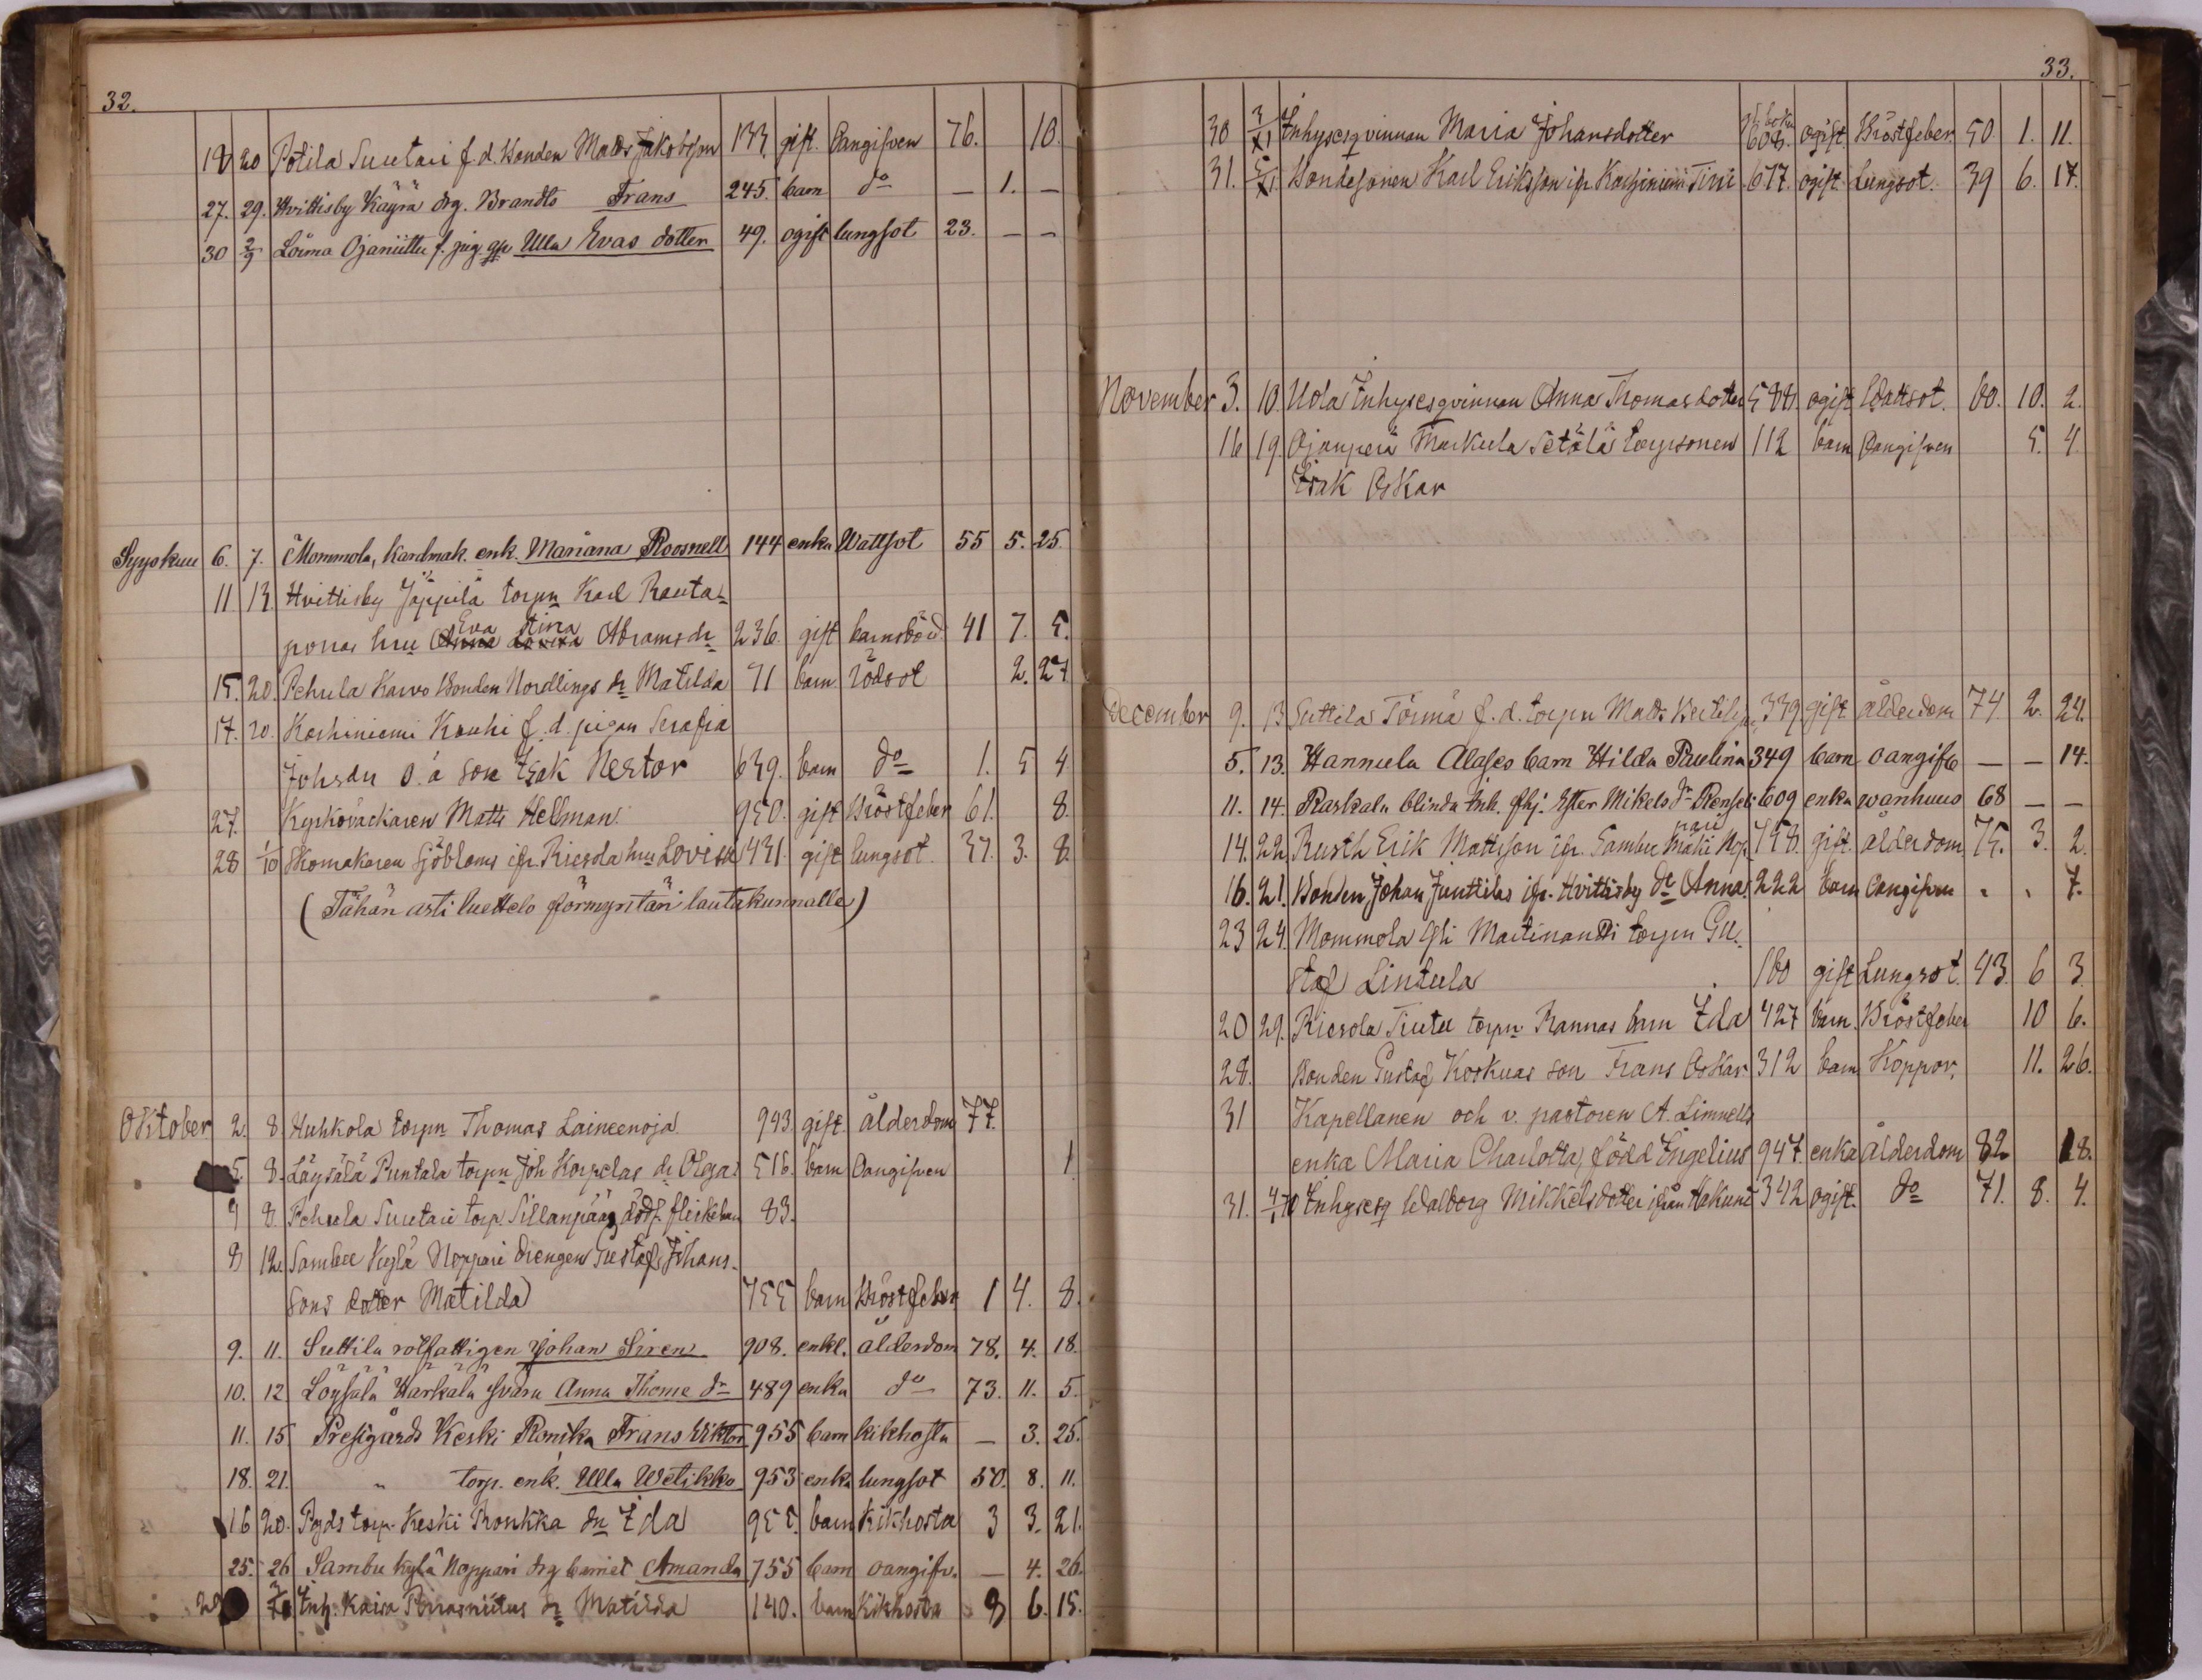 32.
18 20 Potila Suutari f. d. bonden Matts Jakobsson 133. gift. Oangifven 76. 10.
27. 29. Hvittisby Käyrä drg. Brandts Frans 245. barn do — 1. —
30 2/9 Loima Ojaniittu f. pig. Ulla Evas dotter 49. ogift lungsot 23. — —
Syyskuu 6. 7. Mommola, kardmak. enk. Mariana Roosnell 144 enka Wattsot 55 5. 25.
11. 13. Hvittisby Jäppilä torpn Karl Rauta-
ponas hru Eva Stina Abramsdr 236. gift barnsbörd 41 7. 5.
15. 20. Pehula Karvo bonden Nordlings dr Matilda 71 barn rödsot 2. 27
17. 20. Karhiniemi Kouhi f. d. pigan Serafia
Johsdrs o. ä son Isak Nestor 639. barn do 1. 5 4
27. Kyrkoväcktaren Matts Hellman. 950. gift Bröstfeber 61. 8.
28 1/10 Skomakaren Sjöbloms ifr. Riesola hru Lovisa 431. gift lungsot. 37. 3. 8.
(Tähän asti luettelo förmyntäri lautakunnalle)
Oktober 2. 8. Huhkola torpn Thomas Laineenoja. 943. gift. ålderdom 77.
5. 8. Löysälä Puntala torpn Joh Korpelas dr Olga. 516. barn Oangifven 1
9 8. Pehula Suutari torp. Sillanpääs dödf. flickebarn 83.
8 12. Sambu Kylä Noppari drengen Gustaf Johans-
sons dotter Matilda 755 barn Bröstfeber 1 4. 8.
9. 11. Suttila rotfattigen Johan Siren 908. enkl. ålderdom 78. 4. 18.
10. 12 Löysälä Härkälä Anna Thome dr 489 enka do 73. 11. 5.
11. 15 Prestgårds Keski Ronkka Frans Viktor 955 barn kikhosta — 3. 25.
18. 21. " torp. enk. Ulla Wetikko 953 enka lungsot 50. 8. 11.
16 20. Pgds torp. Keski Ronkka dr Ida 955. barn Kikhosta 3 3. 21.
25. 26 Sambu Kylä Noppari drg barnet Amanda 755 barn oangifv. — 4. 26.
29 Inh. Kaisa Porrasniitus dr Matilda 140. barn Kikhosta 8 6. 15.
33.
30 3/11 Inhysesqvinnan Maria Johansdotter 608. ogift Bröstfeber. 50. 1. 11.
31. 5/11 Bondesonen Karl Eriksson ifr Karhiniemi Tini 677. ogift. Lungsot. 39 6. 17.
November 3. 10. Uola Inhysesqvinnan Anna Thomasdotter 588. ogift Wattsot. 60. 10. 2.
16 19 Ojanperä Markula Setälä torpsonen 112 barn Oangifven 5. 4.
Isak Oskar
December 9. 13 Suttila Törmä f. d. torpn Matts 339. gift ålderdom 74 2. 24.
5. 13. Hannula Alases barn Hilda Paulina 349 barn oangifv — — 14.
11. 14. Raskala blinda inh. Ester Mikels dr 609 enka wanhuus 68 — —
14. 22 Rusth Erik Mattsson ifr. Sambu 758. gift. ålderdom 75. 3. 2.
16. 21. Bonden Johan Junttilas ifr. Hvittisby dr Anna. 222 barn Oangifven " " 7.
23 24. Mommola Yli Martinantti torpn Gu-
staf Lintula 160 gift Lungsot. 43. 6 3.
20 29. Riesola Tuutu torpn Rannas barn Ida 427 barn. Bröstfeber 10 6.
28. Bonden Gustaf Koskuas son Frans Oskar 312 barn Koppor. 11. 26.
31 Kapellanen och v. pastoren A. Limnells
enka Maria Charlotta, född Engelius 947. enka ålderdom 82 18.
31. Inhysesq Walborg Mikkelsdotter ifrån Hakuni 342 ogift. do 71. 8. 4.